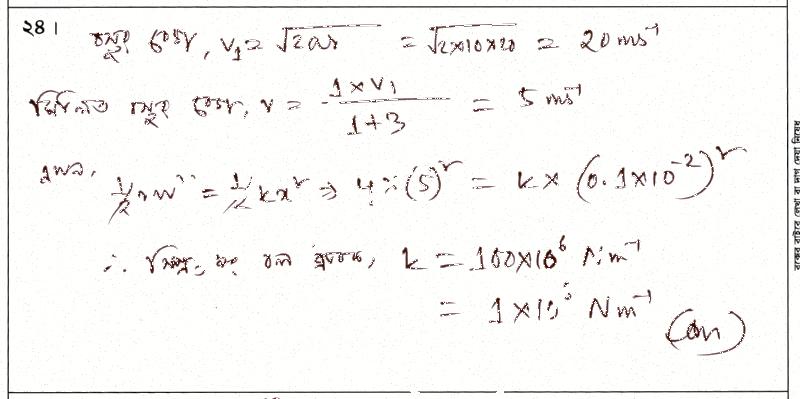 ২৪। বস্তুর বেগ, v₁ = √2as = √2×10×20 = 20 ms⁻¹
মিলিত বস্তুর বেগ, v = 1×v₁/1+3 = 5 ms⁻¹
এখন, 1/2 mv² = 1/2 kx² ⇒ 4×(5)² = k × (0.1×10⁻²)²
∴ স্প্রিং এর বল ধ্রুবক, k = 100×10⁶ Nm⁻¹
= 1×10⁸ Nm⁻¹ (Ans)
বক্সের বাইরে লেখা বা দাগ দেয়া নিষেধ